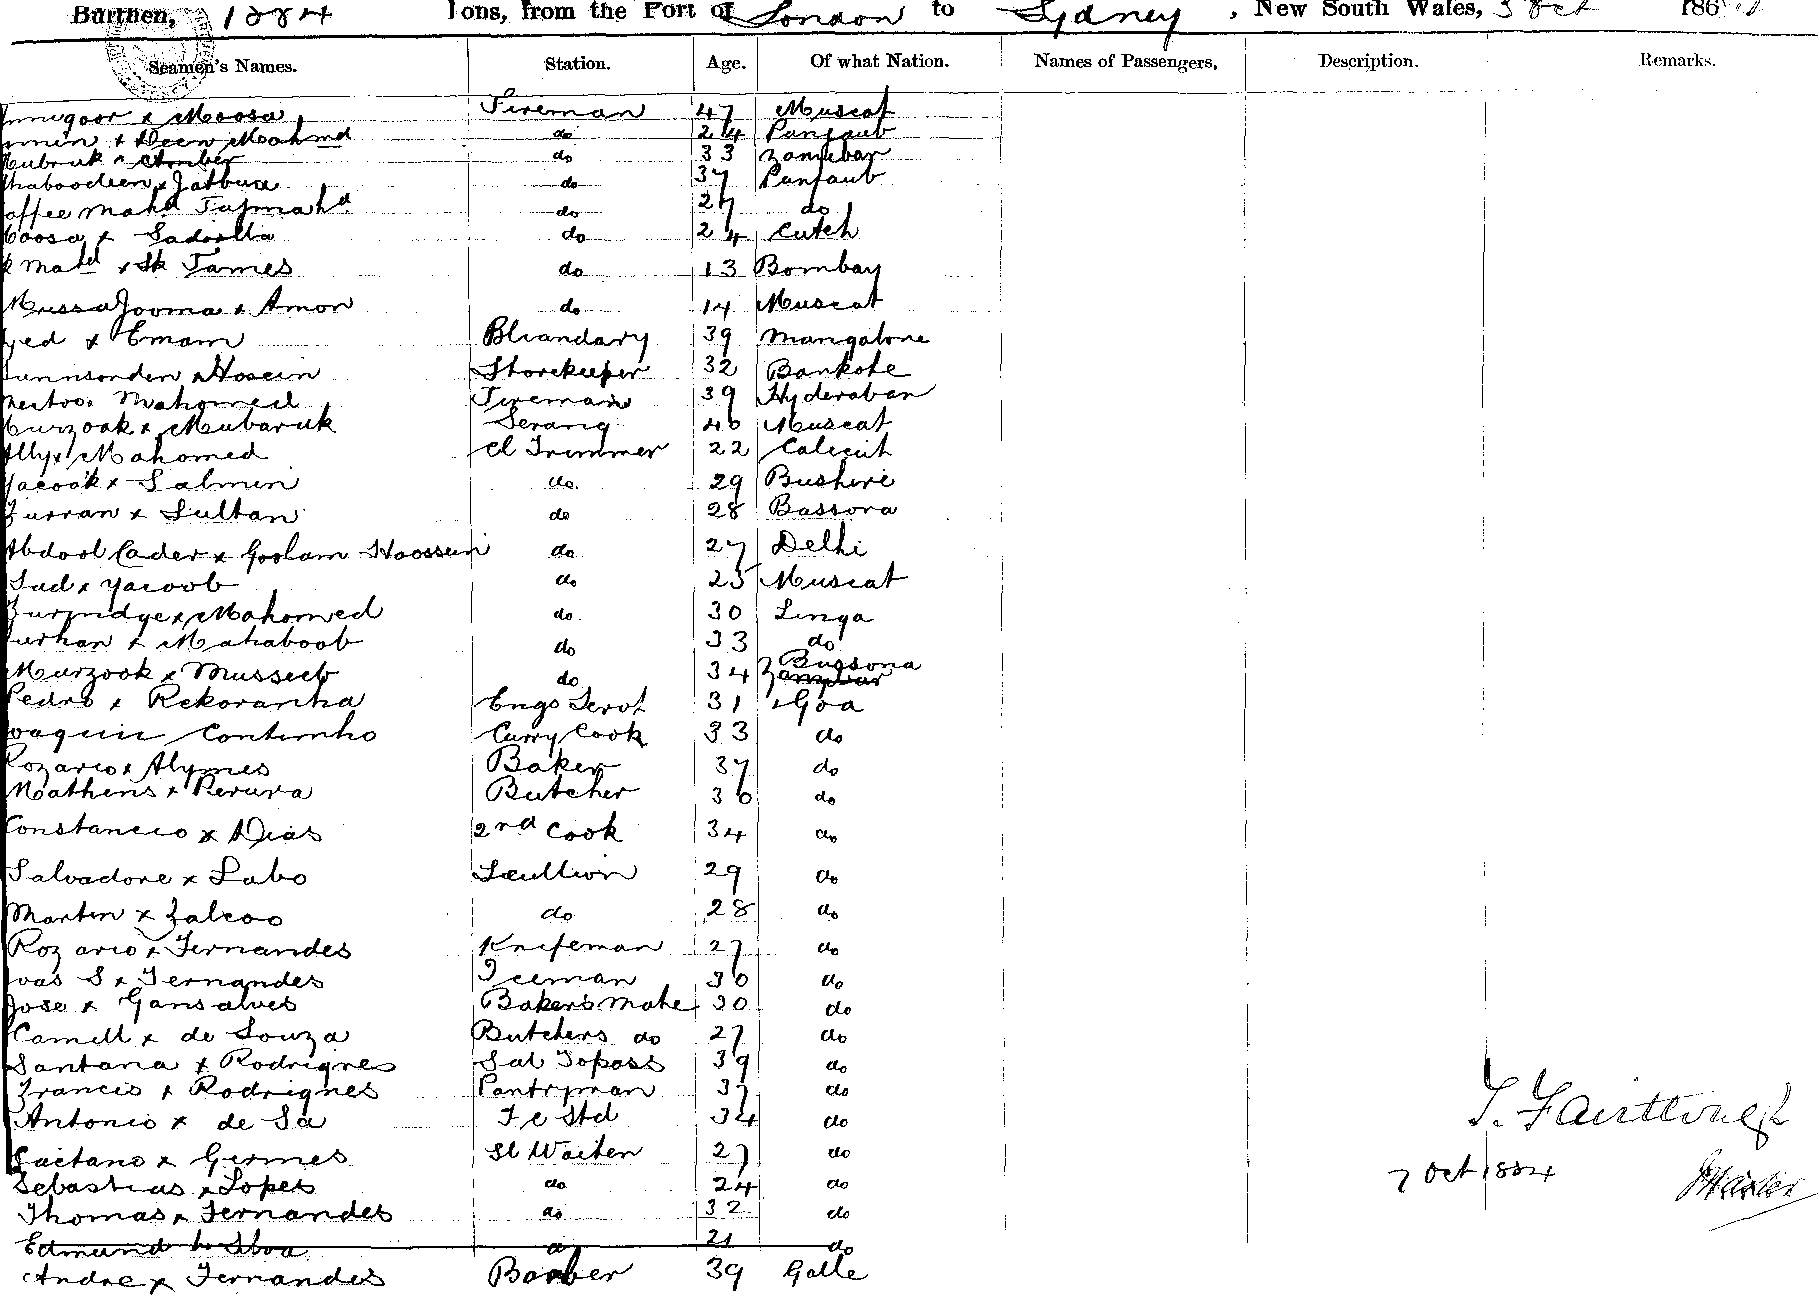 Burthen, 1884 Tons, from the Port of London to Sydney, New South Wales, 3 Oct 186
Seamen's Names. Station. Age. Of what Nation. Names of Passengers, Description. Remarks.
x Moosa Fireman 47 Muscat
x Deen Mahmd do 24 Punjaub
Mubruk x Amber do 33 Zanzibar
do 37 Punjaub
Mahd Tajmahd do 27 do
Moosa x do 24 Cutch
Mahd x Sk James do 13 Bombay
Mussa Jooma x Amon do 14 Muscat
x Emam Bhandary 39 Mangalore
x Hosein Storekeeper 32 Bankote
Mahomed Fireman 39 Hyderaban
Murzook x Mubaruk Serang 40 Muscat
Ally x Mahomed Cl Trimmer 22 Calicut
Yacook x Salmin do. 29 Bushire
Furran x Sultan do 28 Bassora
Abdool Cader x Goolam Hoossein do 27 Delhi
Sud x Yacoob do 25 Muscat
x Mahomed do. 30 Linga
x Mahaboob do 33 do
Murzook x Musseeb do 34 Bussona Zanzibar
Pedro x Rekoranha Engs Servt 31 Goa
Joaquin Contimho Curry Cook 33 do
Rozario x Alymes Baker 37 do
Mathens x Perura Butcher 36 do
Constancio x Dias 2nd Cook 34 do
Salvadore x Labo Scullion 29 do
Martin x Falcao do 28 do
Rozario x Fernandes Knifeman 27 do
S x Fernandes Iceman 30 do
Jose x Gansalves Bakers Mate 30 do
Camill x de Souza Butchers do 27 do
Santana x Rodrignes Sal Topass 39 do
Francis x Rodrignes Pantryman 37 do
Antonio x de Sa F C Std 34 do
Caetano x Germes Sl Waiter 27 do
Sebastias x Lopes do 24 do
Thomas x Fernandes do 32 do
Edmund de Silva do 21 do
Andre x Fernandes Barber 39 Galle
7 Oct 1884
Master